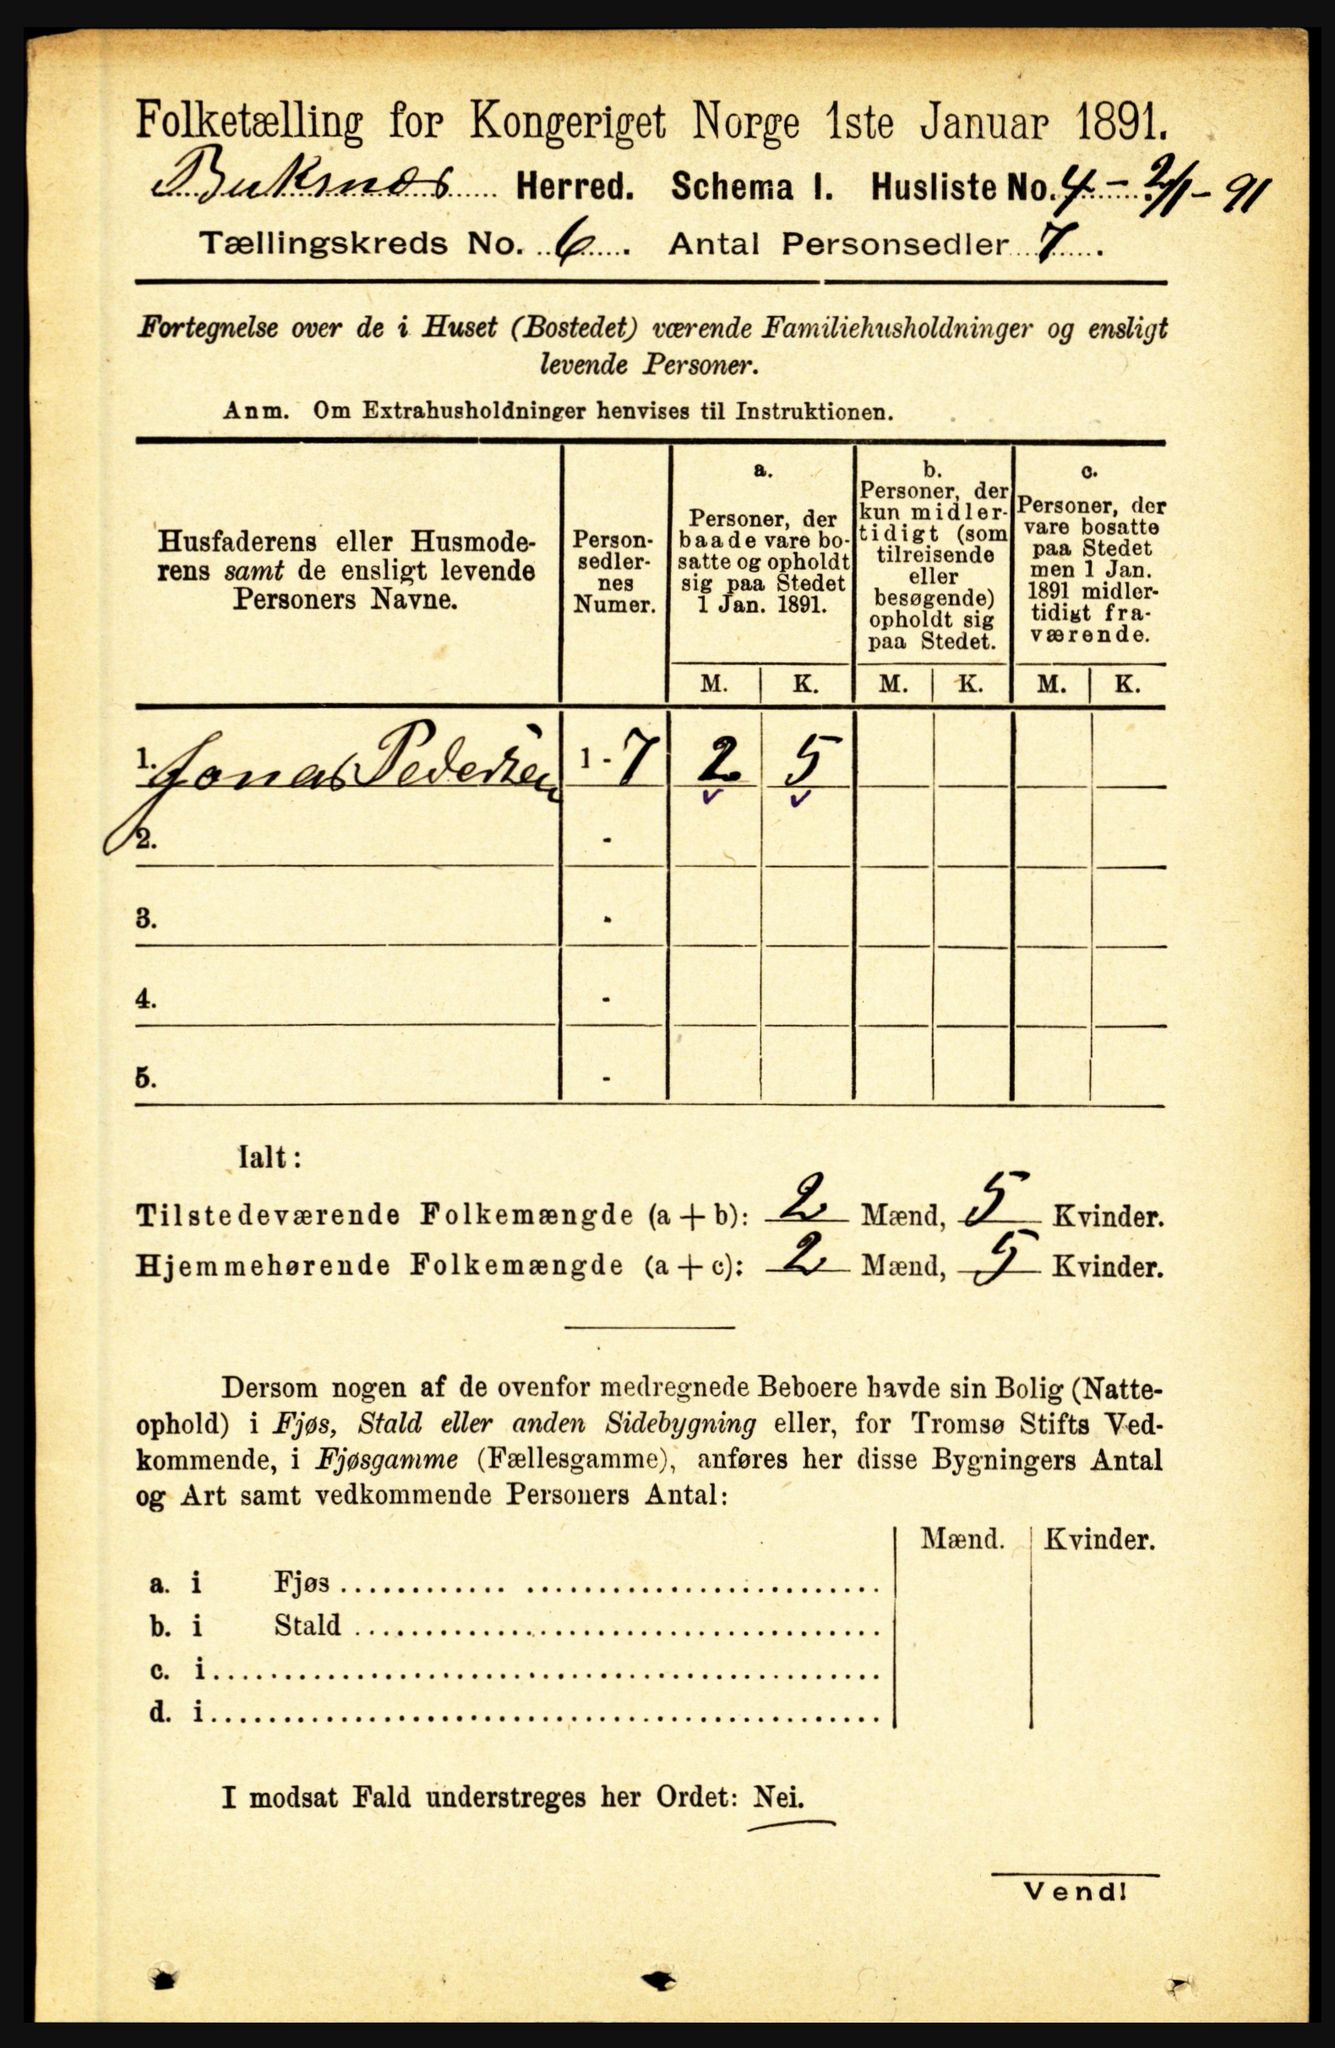 Folketælling for Kongeriget Norge 1ste Januar 1891.
Buksnæs Herred. Schema I. Husliste No. 4 - 2/1 - 91
Tællingskreds No. 6. Antal Personsedler 7.
Fortegnelse over de i Huset (Bostedet) værende Familiehusholdninger og ensligt
levende Personer.
Anm. Om Extrahusholdninger henvises til Instruktionen.
Husfaderens eller Husmode-
rens samt de ensligt levende
Personers Navne.
Person-
sedler-
nes
Numer.
a.
Personer, der
baade vare bo-
satte og opholdt
sig paa Stedet
1 Jan. 1891.
b.
Personer, der
kun midler-
tidigt (som
tilreisende
eller
besøgende)
opholdt sig
paa Stedet.
c.
Personer, der
vare bosatte
paa Stedet
men 1 Jan.
1891 midler-
tidigt fra-
værende.
M. K. M. K. M. K.
1. Jonas Pedersen 1 - 7 2 5
2. -
3. -
4. -
5. -
Ialt:
Tilstedeværende Folkemængde (a + b): 2 Mænd, 5 Kvinder.
Hjemmehørende Folkemængde (a + c): 2 Mænd, 5 Kvinder.
Dersom nogen af de ovenfor medregnede Beboere havde sin Bolig (Natte-
ophold) i Fjøs, Stald eller anden Sidebygning eller, for Tromsø Stifts Ved-
kommende, i Fjøsgamme (Fællesgamme), anføres her disse Bygningers Antal
og Art samt vedkommende Personers Antal:
Mænd. Kvinder.
a. i Fjøs
b. i Stald
c. i
d. i
I modsat Fald understreges her Ordet: Nei.
Vend!